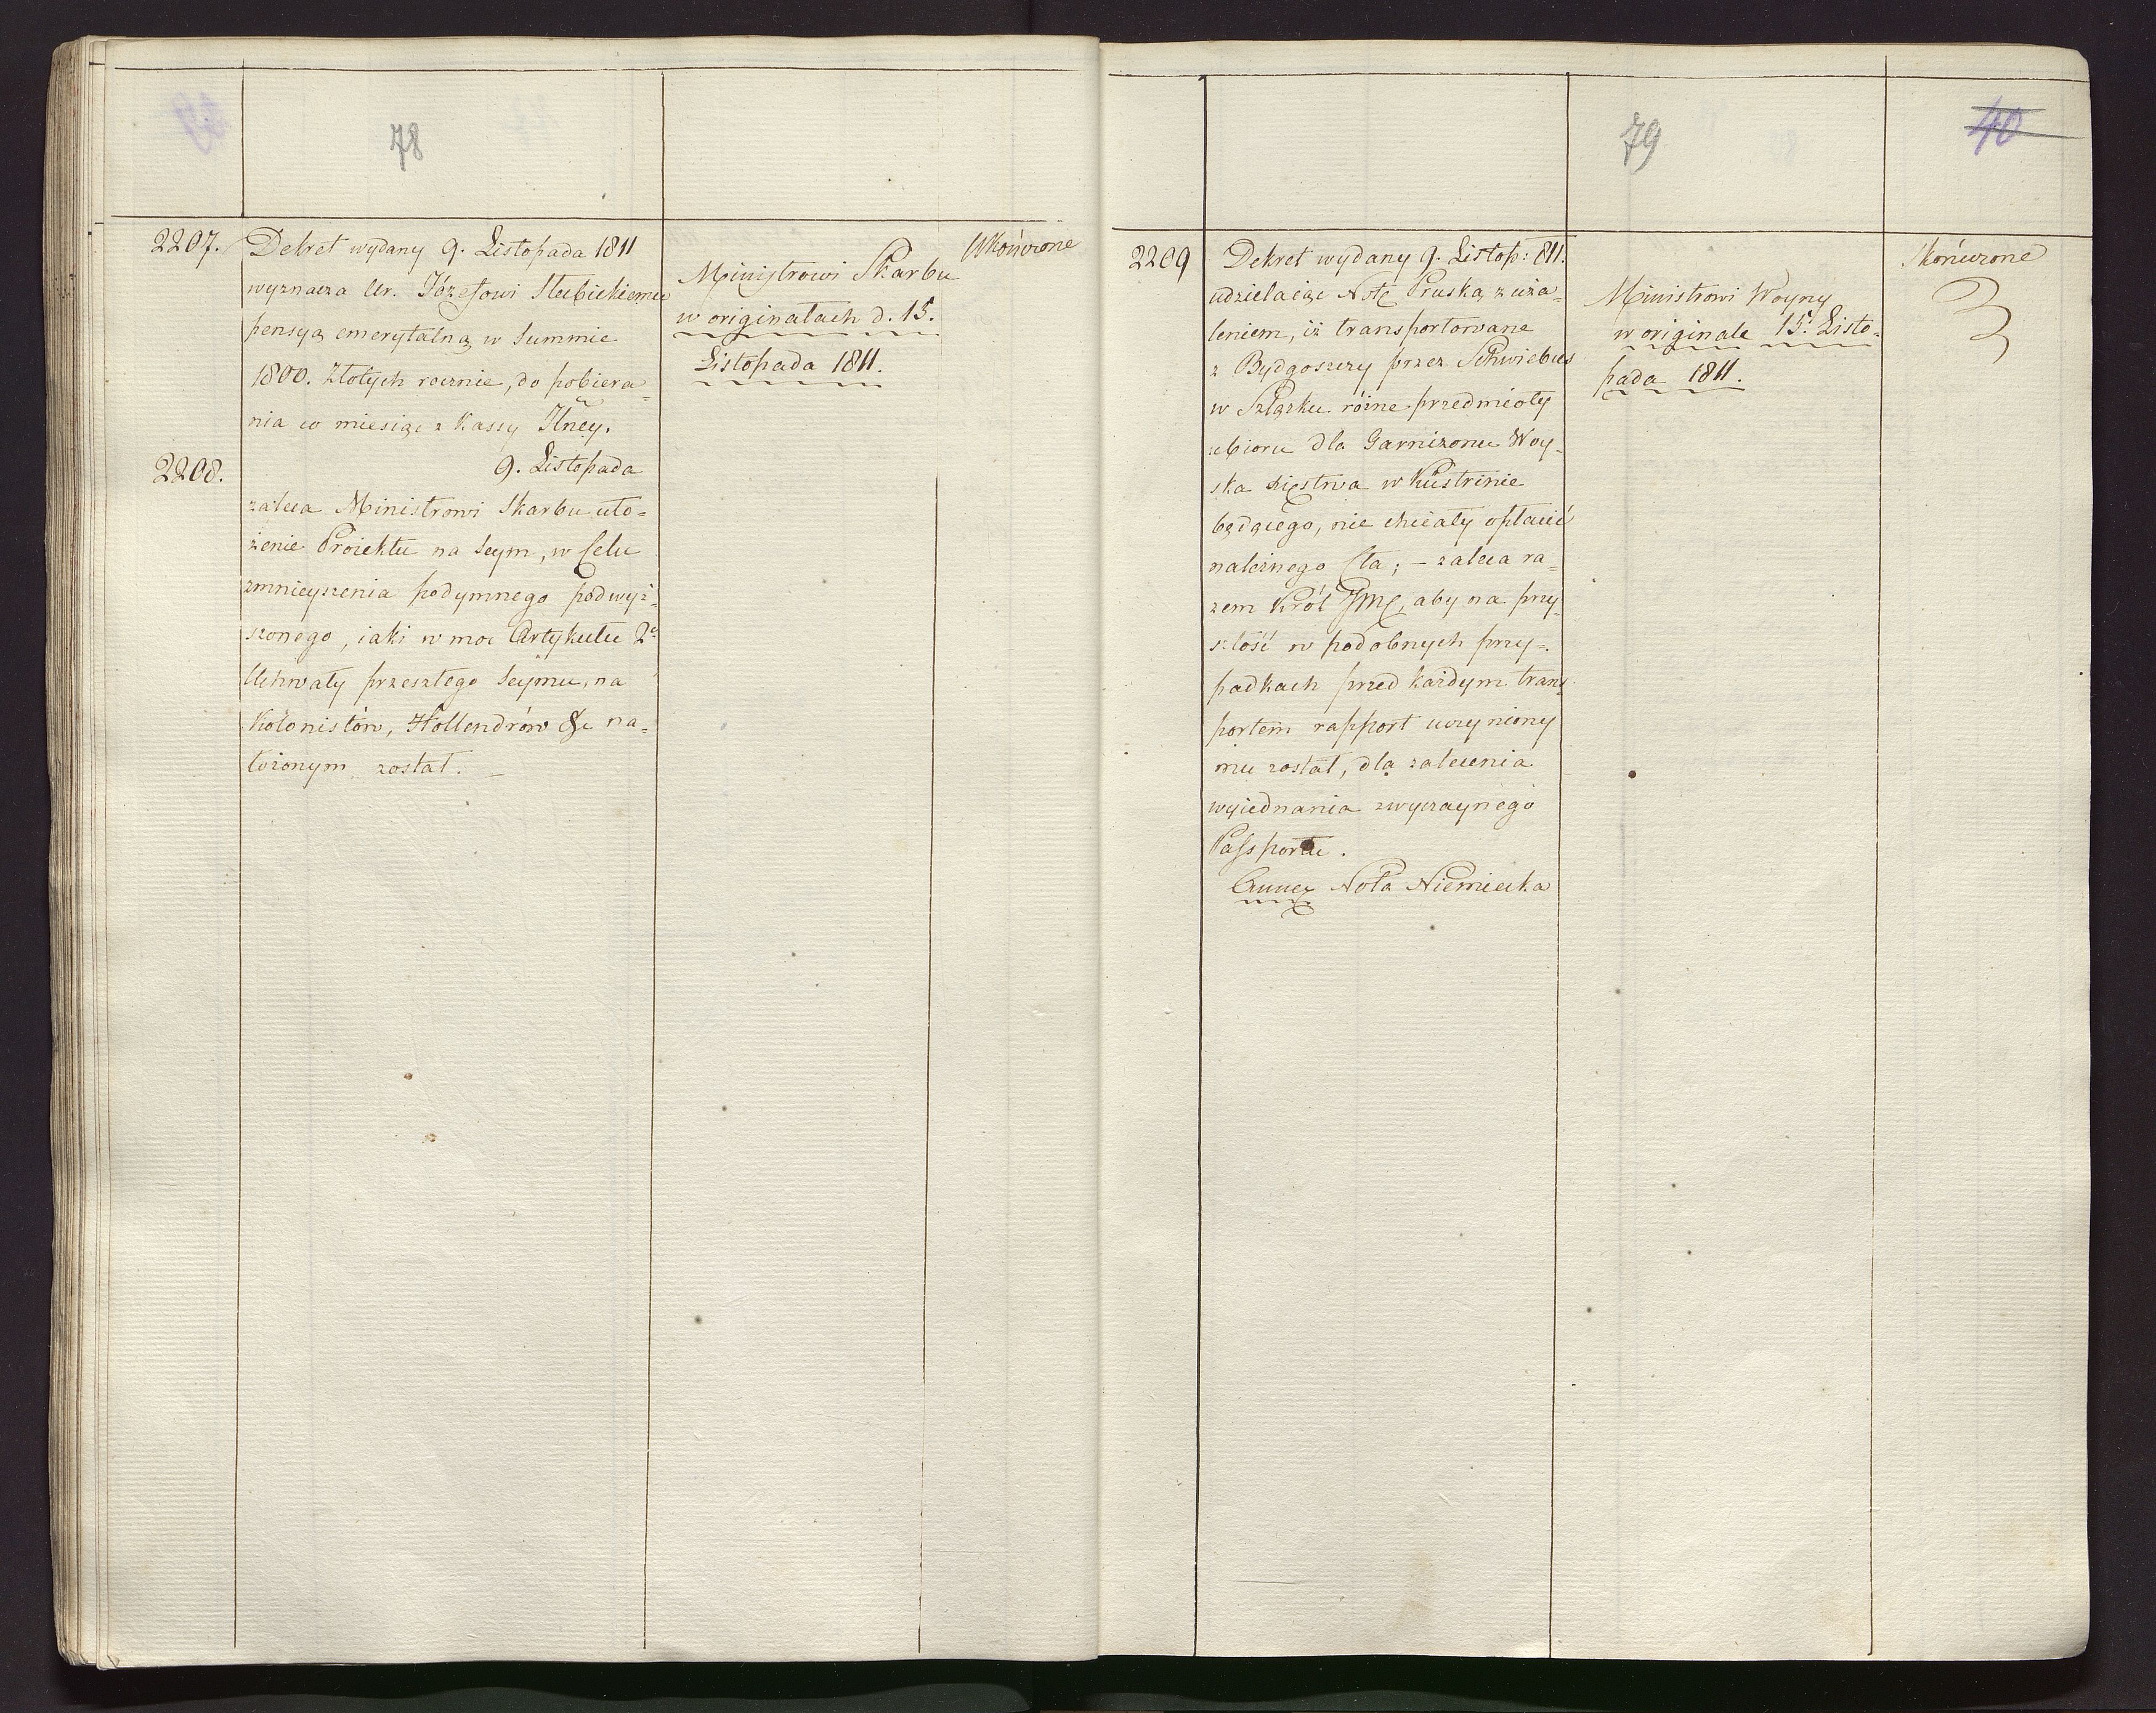 78
2207. Dekret wydany 9. Listopada 1811
wyznacza Ur. Józefowi Stubickiemu
pensyą emerytalną w Summie
1800. Złotych rocznie, do pobiera=
nia co miesiąc z Kassy Głney.
2208. 9. Listopada
zaleca Ministrowi Skarbu uło=
żenie Proiektu na Seym, w Celu
zmnieyszenia podymnego podwyż=
szonego, iaki w moc Artykułu 2º
Uchwały przeszłego Seymu, na
Kolonistów, Hollendrów &c na=
łożonym został. _
Ministrowi Skarbu
w originałach d. 15.
Listopada 1811.
Ukończone
79
40
2209 Dekret wydany 9. Listop: 811.
udzielaiąc Notę Pruską z uża=
leniem, iż transportowane
z Bydgoszczy przez Schwiebus
w Szląsku różne przedmioty
ubioru dla Garnizonu Woy=
ska Xięstwa w Küstrinie
będącego, nie chciały opłacić
należnego Cła; – zaleca ra=
zem Król Jmć, aby na przy=
szłość w podobnych przy=
padkach przed każdym trans=
portem rapport uczyniony
mu został, dla zalecenia
wyiednania zwyczaynego
Passportu.
Annex Nota Niemiecka
Ministrowi Woyny
w originale 15. Listo=
pada 1811.
Skończone